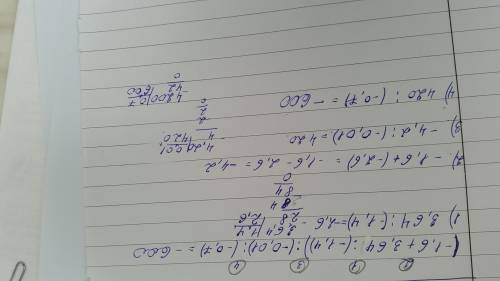 ② ① ③ ④
(-1,6 + 3,64 : (-1,4)) : (-0,01) : (-0,7) = -600
1) 3,64 : (-1,4) = -2,6
3,64 | 1,4
28 | 2,6
84
84
0
2) -1,6 + (-2,6) = -1,6 - 2,6 = -4,2
3) -4,2 : (-0,01) = 420
4,2 | 0,01
4 | 420
2
2
0
4) 420 : (-0,7) = -600
4200 | 0,7
42 | 600
0